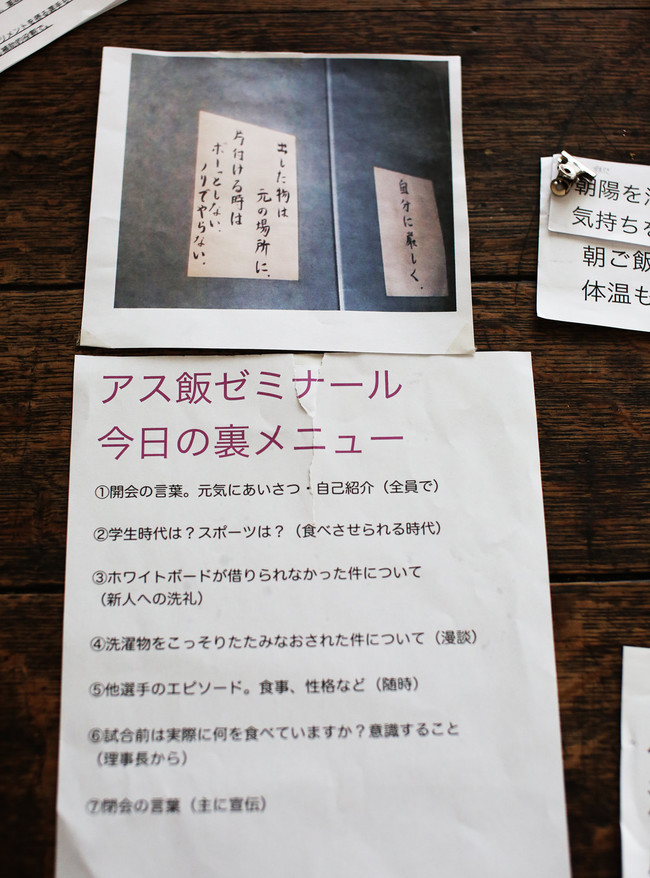 出した物は
元の場所に、
片付ける時は
ボーッとしない、
ノリでやらない、
自分に厳しく、
アス飯ゼミナール
今日の裏メニュー
①開会の言葉。元気にあいさつ・自己紹介（全員で）
②学生時代は？スポーツは？（食べさせられる時代）
③ホワイトボードが借りられなかった件について
（新人への洗礼）
④洗濯物をこっそりたたみなおされた件について（漫談）
⑤他選手のエピソード。食事、性格など（随時）
⑥試合前は実際に何を食べていますか？意識すること
（理事長から）
⑦閉会の言葉（主に宣伝）
朝陽を
気持ちを
朝ご飯
体温も